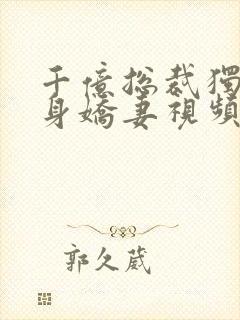 千億総裁獨
身嬌妻視頻
郭久葳